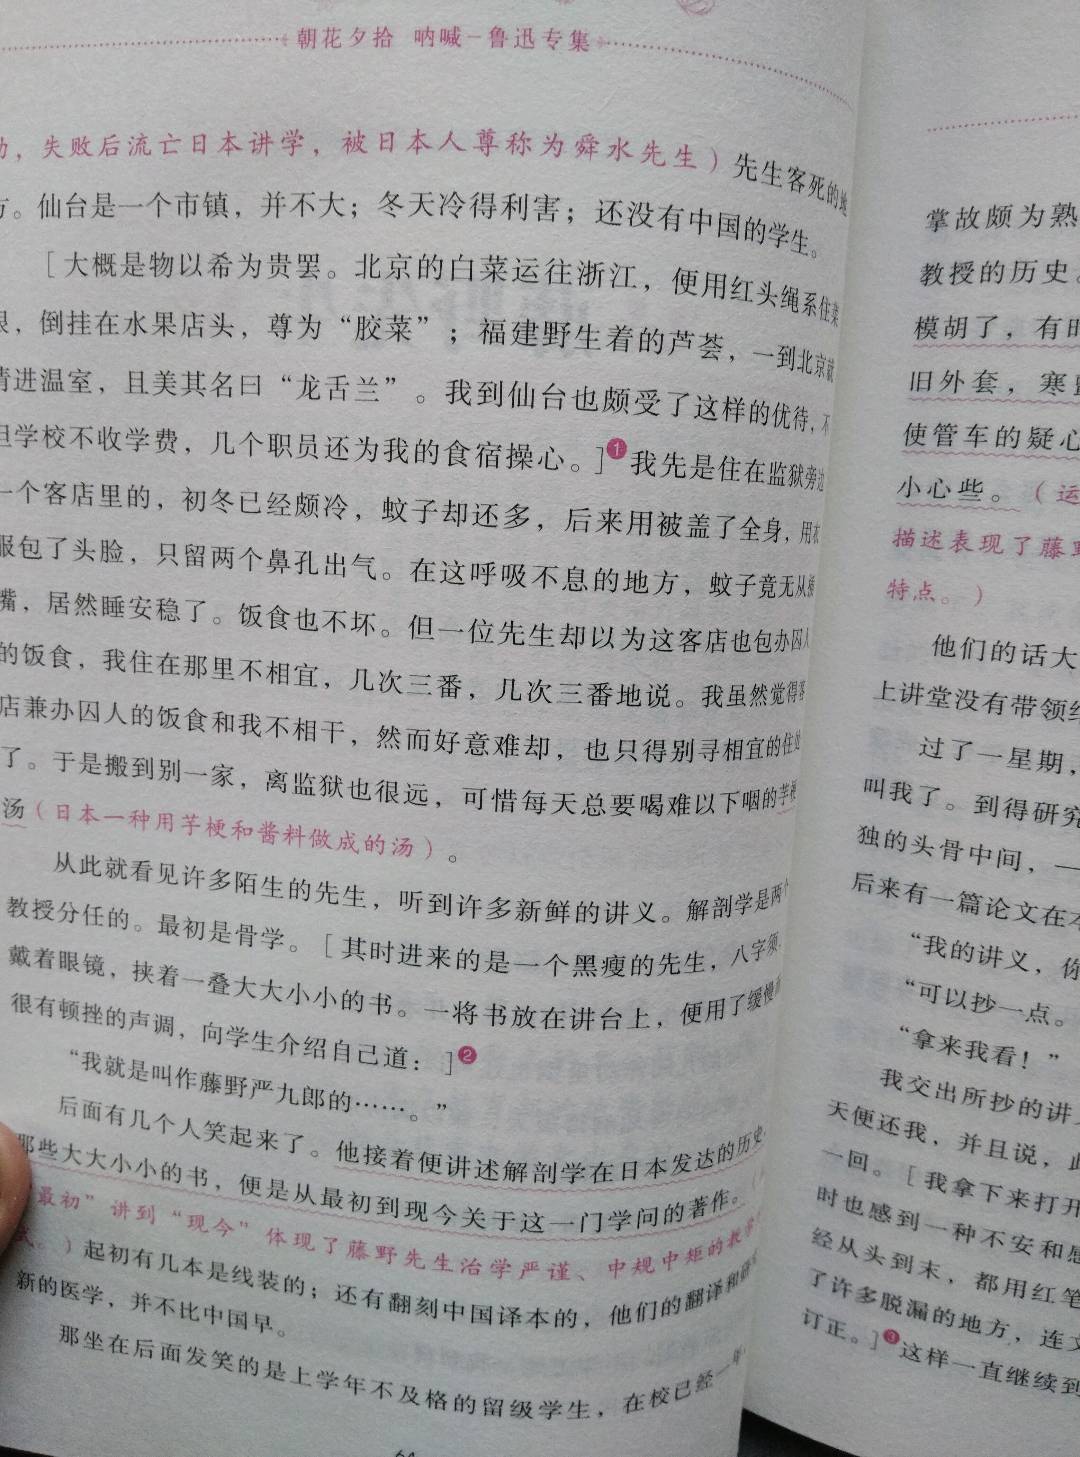 朝花夕拾 呐喊-鲁迅专集
，失败后流亡日本讲学，被日本人尊称为舜水先生）先生客死的地
方。仙台是一个市镇，并不大；冬天冷得利害；还没有中国的学生。
［大概是物以希为贵罢。北京的白菜运往浙江，便用红头绳系住菜
根，倒挂在水果店头，尊为“胶菜”；福建野生着的芦荟，一到北京就
请进温室，且美其名曰“龙舌兰”。我到仙台也颇受了这样的优待，不
但学校不收学费，几个职员还为我的食宿操心。］❶我先是住在监狱旁边
一个客店里的，初冬已经颇冷，蚊子却还多，后来用被盖了全身，用衣
服包了头脸，只留两个鼻孔出气。在这呼吸不息的地方，蚊子竟无从插
嘴，居然睡安稳了。饭食也不坏。但一位先生却以为这客店也包办囚人
的饭食，我住在那里不相宜，几次三番，几次三番地说。我虽然觉得客
店兼办囚人的饭食和我不相干，然而好意难却，也只得别寻相宜的住处
了。于是搬到别一家，离监狱也很远，可惜每天总要喝难以下咽的芋梗
汤（日本一种用芋梗和酱料做成的汤）。
从此就看见许多陌生的先生，听到许多新鲜的讲义。解剖学是两个
教授分任的。最初是骨学。［其时进来的是一个黑瘦的先生，八字须，
戴着眼镜，挟着一叠大大小小的书。一将书放在讲台上，便用了缓慢而
很有顿挫的声调，向学生介绍自己道：］❷
“我就是叫作藤野严九郎的……。”
后面有几个人笑起来了。他接着便讲述解剖学在日本发达的历史，
那些大大小小的书，便是从最初到现今关于这一门学问的著作。（
最初”讲到“现今”体现了藤野先生治学严谨、中规中矩的教学
。）起初有几本是线装的；还有翻刻中国译本的，他们的翻译和研究
新的医学，并不比中国早。
那坐在后面发笑的是上学年不及格的留级学生，在校已经一年，
掌故颇为熟
教授的历史。
模胡了，有时
旧外套，寒
使管车的疑心
小心些。（运
描述表现了藤野
特点。）
他们的话大
上讲堂没有带领
过了一星期，
叫我了。到得研究
独的头骨中间，—
后来有一篇论文在本
“我的讲义，你
“可以抄一点。
“拿来我看！”
我交出所抄的讲义
天便还我，并且说，此
一回。［我拿下来打开
时也感到一种不安和感
经从头到末，都用红笔
了许多脱漏的地方，连文
订正。］❸这样一直继续到